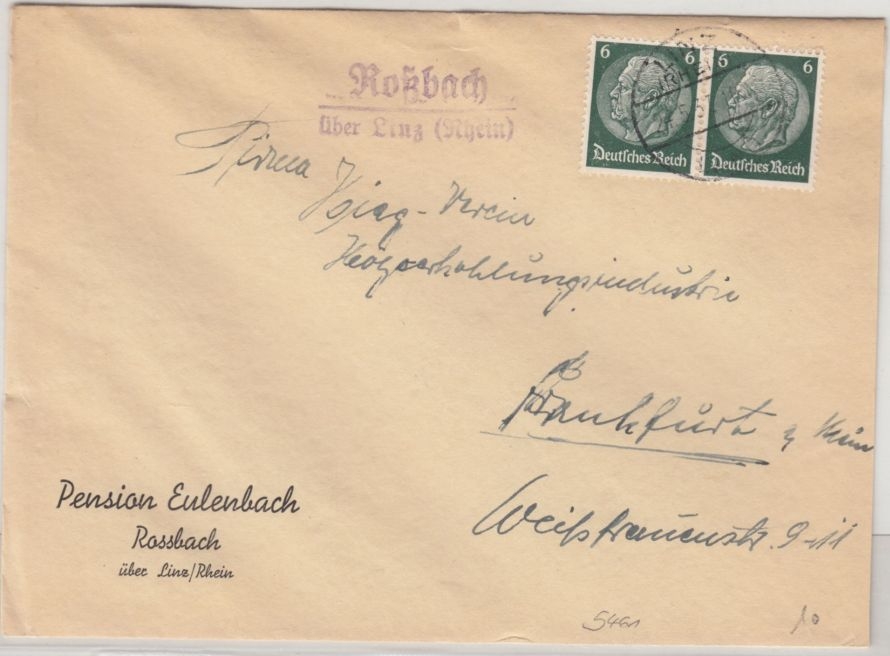 Roßbach
über Linz (Rhein)
6 6
Deutsches Reich Deutsches Reich
LINZ
(RHEIN)
Firma
Hiag-Verein
Holzverkohlungsindustrie
Frankfurt a Main
Weißfrauenstr. 9-11
Pension Eulenbach
Rossbach
über Linz/Rhein
10